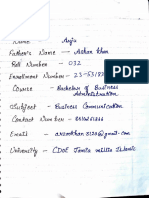 Name - Anju
Father's Name - Khan
Roll Number - 032
Enrollment Number - 23-5318
Course - Bachelor of Business Administration
Subject - Business Communication
Contact Number -
Email - @gmail.com
University - CDOE Jamia millia Islamia